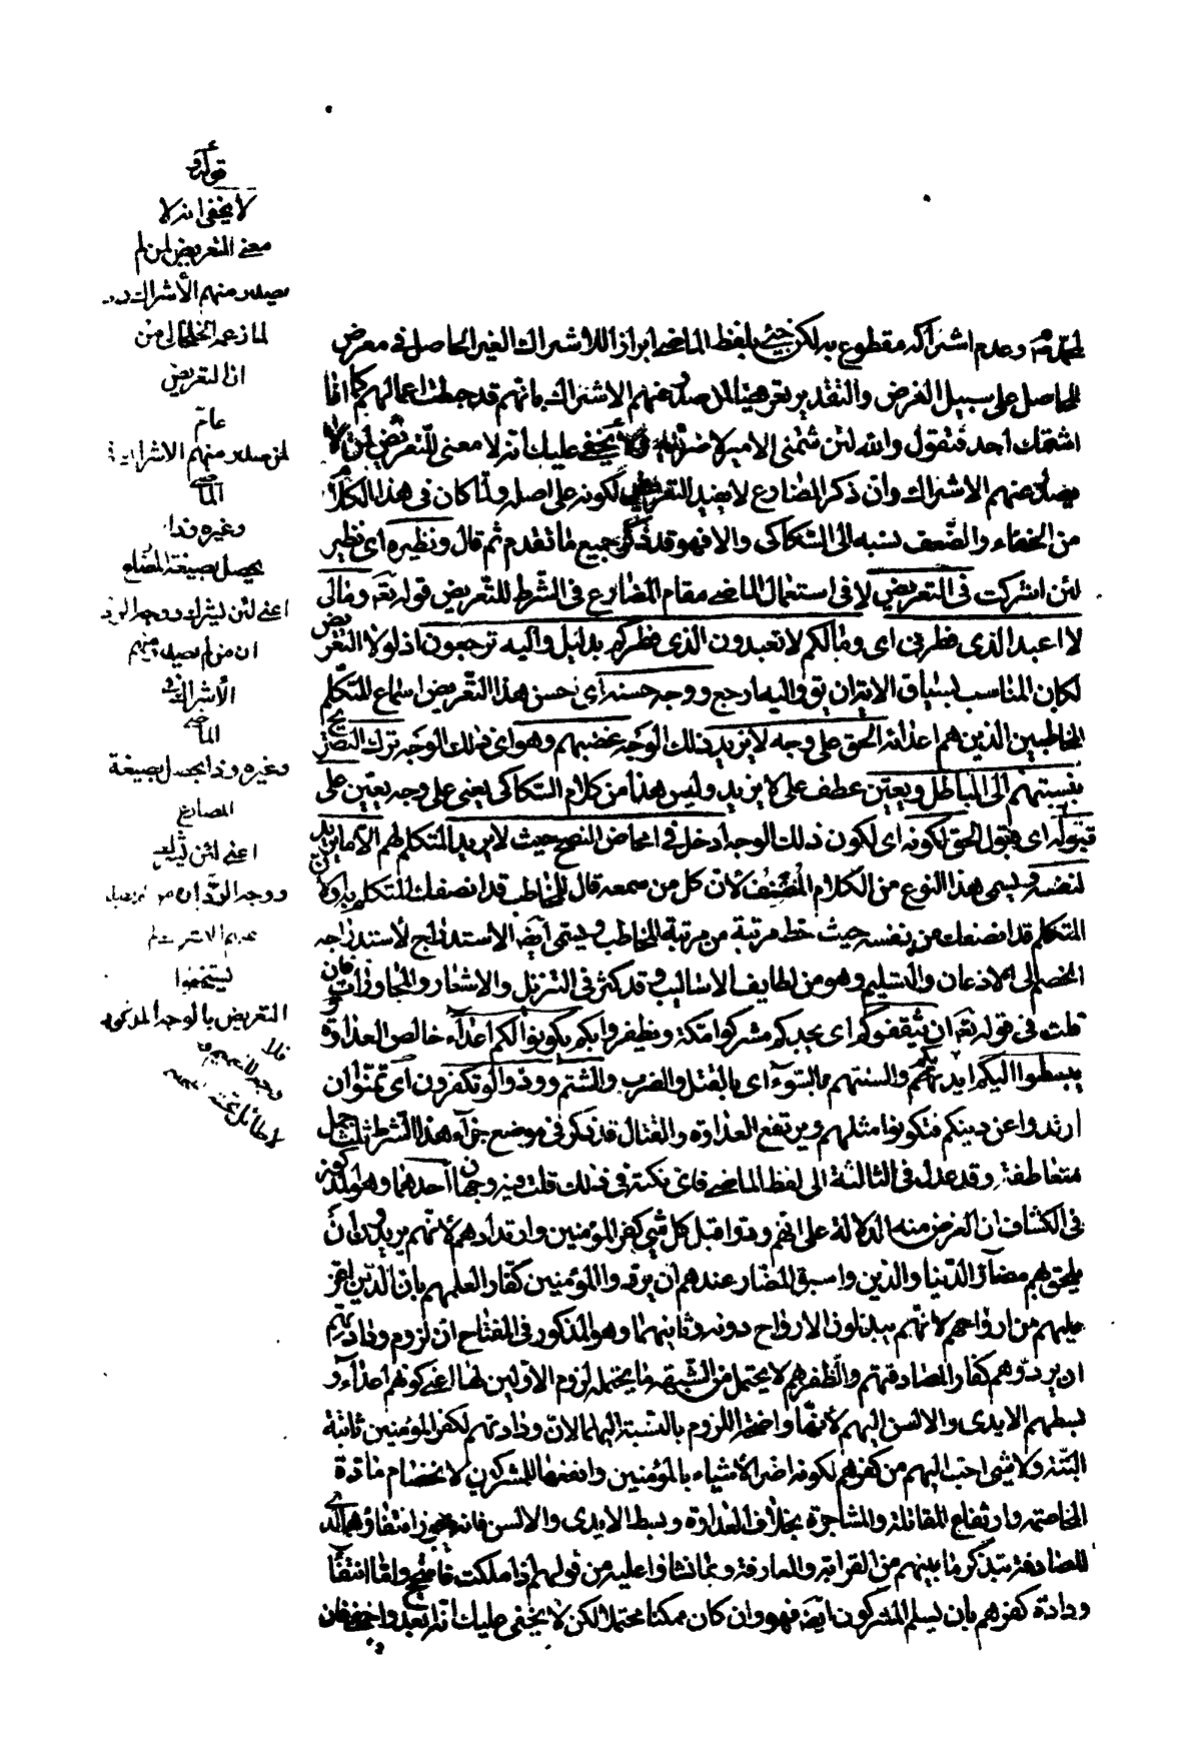 لمحمد صم وعدم اشراكه مقطوع به لكن جئ بلفظ الماضى ابرازا للاشراك الغير الحاصل فى معرض
الحاصل على سبيل الفرض والتقدير تعريضا لمن صدر عنهم الاشراك بانهم قد حبطت اعمالهم كما اذا
اشتمك احد فتقول والله لئن شتمنى الامير لاضربنه ولا يخفى عليك انه لا معنى للتعريض لمن لم
يصدر عنهم الاشراك وان ذكر المضارع لا يفيد التعريض لكونه على اصله ولما كان فى هذا الكلام
من الخفاء والضعف نسبه الى السكاكى والا فهو قد ذكر جميع ما تقدم ثم قال ونظيره اى نظير
لئن اشركت فى التعريض لا فى استعمال الماضى مقام المضارع فى الشرط للتعريض قوله تعه ومالى
لا اعبد الذى فطرنى اى ومالكم لا تعبدون الذى فطركم بدليل واليه ترجعون اذ لولا التعريض
لكان المناسب لسياق الاية ان يقو واليه ارجع ووجه حسنه اى حسن هذا التعريض اسماع المتكلم
المخاطبين الذين هم اعدائه الحق على وجه لا يزيد ذلك الوجه غضبهم وهو اى ذلك الوجه ترك التصريح
بنسبتهم الى الباطل ويعين عطف على لا يزيد وليس هذا من كلام السكاكى يعنى على وجه يعين على
قبوله اى قبول الحق لكونه اى لكون ذلك الوجه ادخل فى امحاض النصح حيث لا يريد المتكلم لهم الا ما يريد
لنفسه ويسمى هذا النوع من الكلام المنصف لان كل من سمعه قال للمخاطب قد انصفك المتكلم به ولان
المتكلم قد انصفك من نفسه حيث حط مرتبة من مرتبة المخاطب ويسمى ايضه الاستدراج لاستدراجه
الخصم الى الاذعان والتسليم وهو من لطايف الاساليب وقد كثر فى التنزيل والاشعار والمحاورات فان
قلت فى قوله تعه ان يثقفوكم اى يجدكم مشركوا مكة ويظفروا بكم يكونوا لكم اعداء خالص العداوة
يبسطوا اليكم ايديهم والسنتهم بالسوء اى بالقتل والضرب والشتم وودوا لو تكفرون اى تمنوا ان
ارتدوا عن دينكم فتكونوا مثلهم ويرتفع العداوة والقتال قد ذكر فى موضع جزاء هذا الشرط ثلث جمل
متعاطفة وقد عدل فى الثالثة الى لفظ الماضى فاى نكتة فى ذلك قلت فيه وجهان احدهما وهو المذكور
فى الكشاف ان الغرض منه الدلالة على انهم ودوا قبل كل شئ كفر المؤمنين وارتدادهم لانهم يريدون ان
يلحق بهم مضار الدنيا والدين واسبق المضار عندهم ان يردوا المؤمنين كفارا لعلمهم بان الدين اعز
عليهم من ارواحهم لانهم يبذلون الارواح دونه وثانيهما وهو المذكور فى المفتاح ان لزوم ودادتهم
ان يردوهم كفارا لمصادفتهم والظفر بهم لا يحتمل من الشبهه ما يحتمله لزوم الاولين لها اعنى كونهم اعداء و
بسطهم الايدى والالسن اليهم لانها واضحة اللزوم بالنسبة اليهما لان ودادتهم لكفر المؤمنين ثابتة
البتة ولا شئ احب اليهم من كفرهم لكونه اضر الاشياء بالمؤمنين وانفعها للمشركين لانحسام مادة
المخاصمه وارتفاع المقاتلة والمشاجرة بخلاف العداوة وبسط الايدى والالسن فانه يجوز انتفاؤهما لدى
المصادفة بتذكر ما بينهم من القرابة والمعارفة وبما نشاوا عليه من قولهم اذا ملكت فاسجح واما انتفاء
ودادة كفرهم بان يسلم المشركون ايضه فهو وان كان ممكنا محتملا لكن لا يخفى عليك انه ابعد واخفى فان
قوله و
لا يخفى انه لا
معنى التعريض لمن لم
يصدر منهم الاشراك
لما زعمه الخلخالى من
ان التعريض
عام
لمن صدر منهم الاشراك فى
الماضى
وغيره وذا
يحصل بصيغة المضارع
اعنى لئن ليشرك ووجه الرد
ان من لم يصدر منهم
الاشراك فى
الماضى
وغيره وذا يحصل بصيغة
المضارع
اعنى لئن ليشرك
ووجه الرد ان من لم يصدر
عنهم الاشراك لم
يستحقوا
التعريض بالوجه المذكور
فلا
وجه
لا طائل تحته